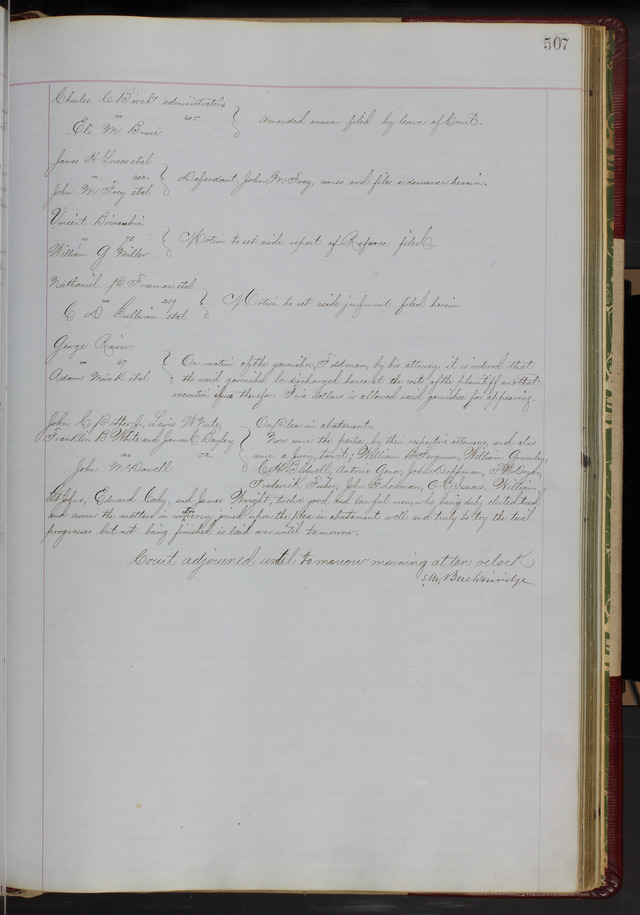 507
Charles C Birch administrator
vs 605 Amended answer filed by leave of Court.
Eli M Bruce
James H Lucas etal
vs Defendant, John M Frey, comes and files a demurrer herein.
John M Frey etal
Vincent Boisaubin
vs 70 Motion to set aside report of Referee filed
William G Miller
Nathaniel D Freeman etal
vs 219 Motion to set aside judgment filed herein
C D Sullivan etal
George Rosier
vs 67 On motion of the garnishee, Feldman, by his attorney it is ordered that
Adam Mink etal the said garnishee be discharged hence at the costs of the plaintiff and that
execution issue therefor. Five dollars is allowed said garnishee for appearing.
John C Potter Jr, Lewis White, On Plea in abatement.
Franklin B White and James C Bayley Now come the parties, by their respective attorneys, and also
vs 52 come a jury, towit; William B Ferguson, William Grumley
John McDowell C H Bidwell, Antoine Gena, John Deppman,
Frederick Fisher, John Feldman, O C Isaacs, William
Edward Cody, and James Wright, twelve good and lawful men, who having duly elected tried
and sworn the matters in controversy joined upon the plea in abatement well and truly to try the trial
progresses but not being finished is laid over until tomorrow.
Court adjourned until tomorrow morning at ten oclock
S. M. Breckinridge